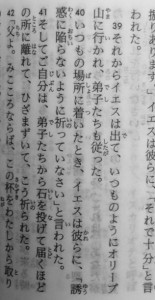 振りあります」イエスは彼らに、「それで十分」と言
われた。
39それからイエスは出て、いつものようにオリーブ
山に行かれ、弟子たちも従った。
40いつもの場所に着いたとき、イエスは彼らに、「誘
惑に陥らないように祈っていなさい」と言われた。
41そしてご自分は、弟子たちから石を投げて届くほど
の所に離れて、ひざまずいて、こう祈られた。
42「父よ。みこころならば、この杯をわたしから取り